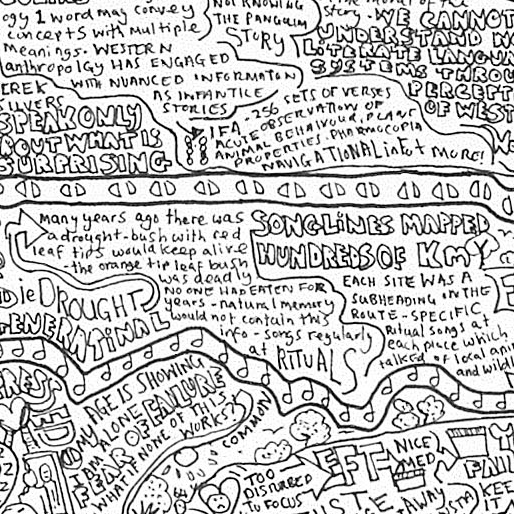 ogy 1 word may convey
concepts with multiple
meanings. WESTERN
anthropology HAS ENGAGED
WITH NUANCED INFORMATON
AS INFANTILE
STORIES
NOT KNOWING
THE PANGOLIN
STORY
story. WE CANNOT
UNDERSTAND
LITERATE
SYSTEMS
PERCEPT
OF WEST
EREK
SILVERS
SPEAK ONLY
ABOUT WHAT IS
SURPRISING
IFA - 256 SETS OF VERSES
ACUTE OBSERVATION OF
ANIMAL BEHAIVOUR, PLANT
PROPERTIES. PHARMOCOPIA
NAVIGATIONAL info + MORE!
Many years ago there was
a drought - bush with red
leaf tips would keep alive
- the orange tip leaf bush
was deadly
NO ONE HAD EATEN FOR
years - natural memory
would not contain this
info - songs regularly
at RITUALS
die DROUGHT
GENERATINAL
SONGLINES MAPPED
HUNDREDS OF KM
EACH SITE WAS A
SUBHEADING IN THE
ROUTE - SPECIFIC
Ritual songs at
each place which
talked of local
and
MY AGE IS SHOWING
I AM ALONE FAILURE
FEAR OF
WHAT IF NONE OF THIS
WORKS?
COMMON
TOO
DISTURBED
TO FOCUS
EFT
NICE
MED